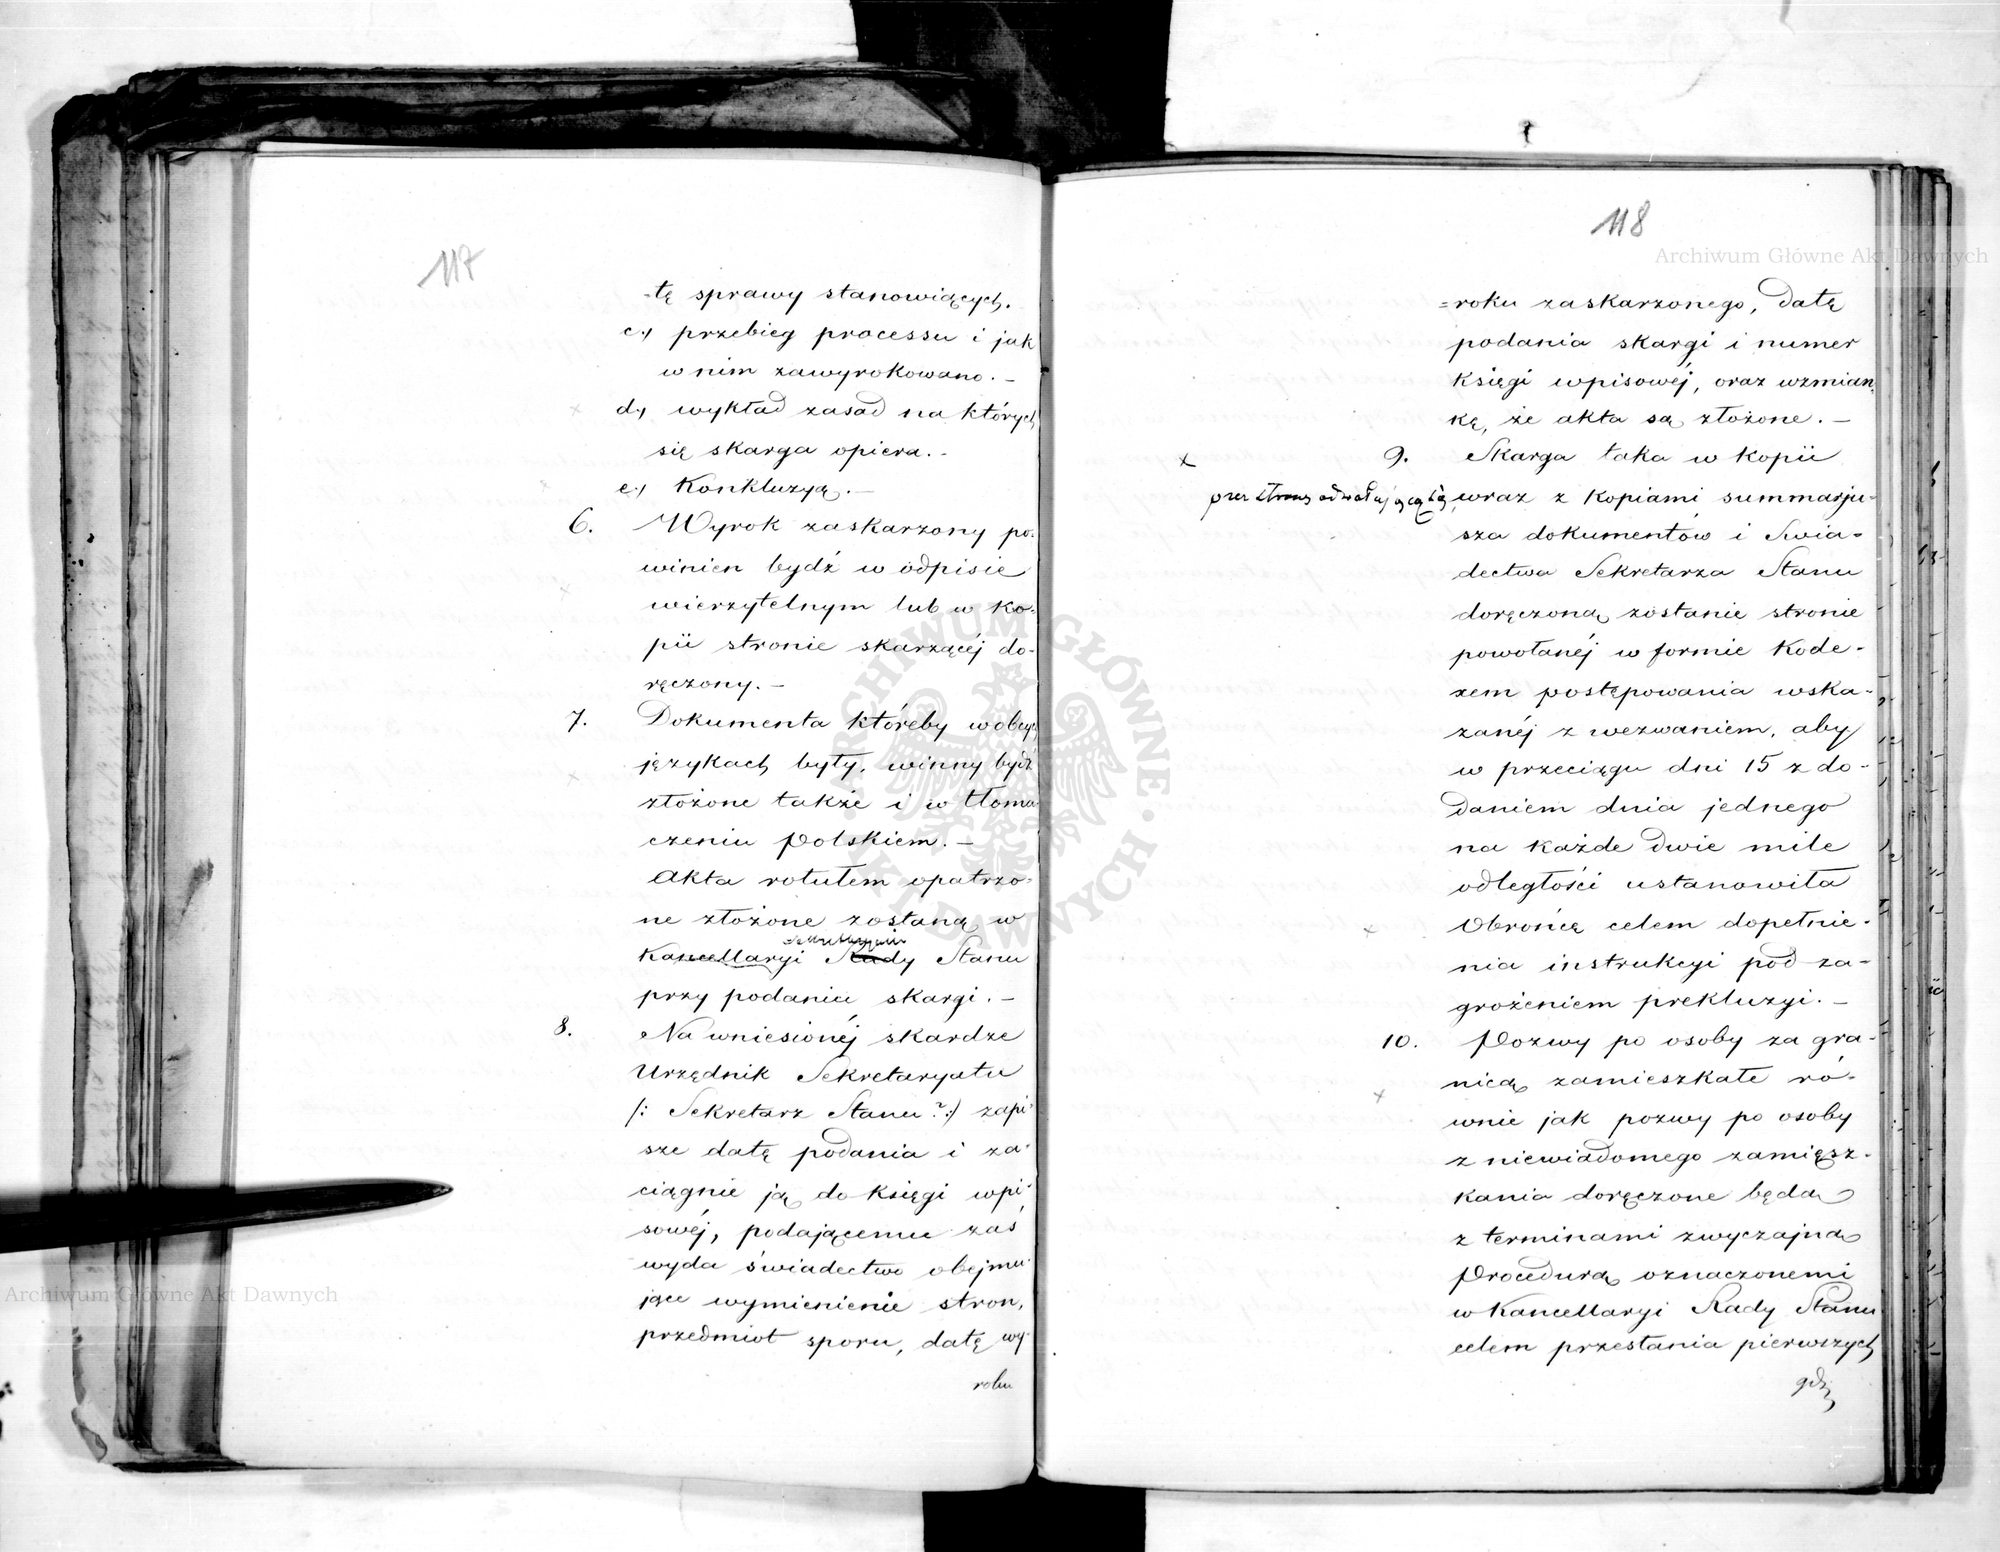 117
-tę sprawy stanowiących.
c.) przebieg processu i jak
w nim zawyrokowano. –
d.) wykład zasad na których
się skarga opiera. –
e.) Konkluzyą. –
6. Wyrok zaskarzony po-
winien bydź w odpisie
wierzytelnym lub w ko-
pii stronie skarzącéj do-
ręczony. –
7. Dokumenta któreby w obcych
językach były, winny bydź
złożone także i w tłoma
czeniu Polskiem. –
Akta rotułem opatrzo-
ne złożone zostaną w
Kancellaryi Rady Stanu
przy podaniu skargi. –
8. Na wniesionéj skardze
Urzędnik Sekretaryatu
/: Sekretarz Stanu ?:/ zapi-
sze datę podania i za-
ciągnie ją do księgi wpi-
sowéj, podającemu zaś
wyda świadectwo obejmu-
jące wymienienie stron,
przedmiot sporu, datę wy-
roku
118
Archiwum Główne Akt Dawnych
=roku zaskarzonego, datę
podania skargi i numer
Księgi wpisowéj, oraz wzmian,
kę, że akta są złożone. –
9. Skarga taka w kopii
przez stronę odwołującą się, wraz z kopiami summarju-
sza dokumentów i Swia-
dectwa Sekretarza Stanu
doręczoną zostanie stronie
powołanéj w formie Kode-
xem postępowania wska-
zanéj z wezwaniem, aby
w przeciągu dni 15 z do-
daniem dnia jednego
na każde dwie mile
odległości ustanowiła
Obrońcę celem dopełnie-
nia instrukcyi pod za-
grożeniem prekluzyi. –
10. Pozwy po osoby za gra-
nicą zamieszkałe ró-
wnie jak pozwy po osoby
z niewiadomego zamięsz-
kania doręczone będą
z terminami zwyczajną
Procedurą oznaczonemi
w Kancellaryi Rady Stanu
celem przesłania pierwszych
gdzi
ARCHIWUM GŁÓWNE AKT DAWNYCH
Archiwum Główne Akt Dawnych